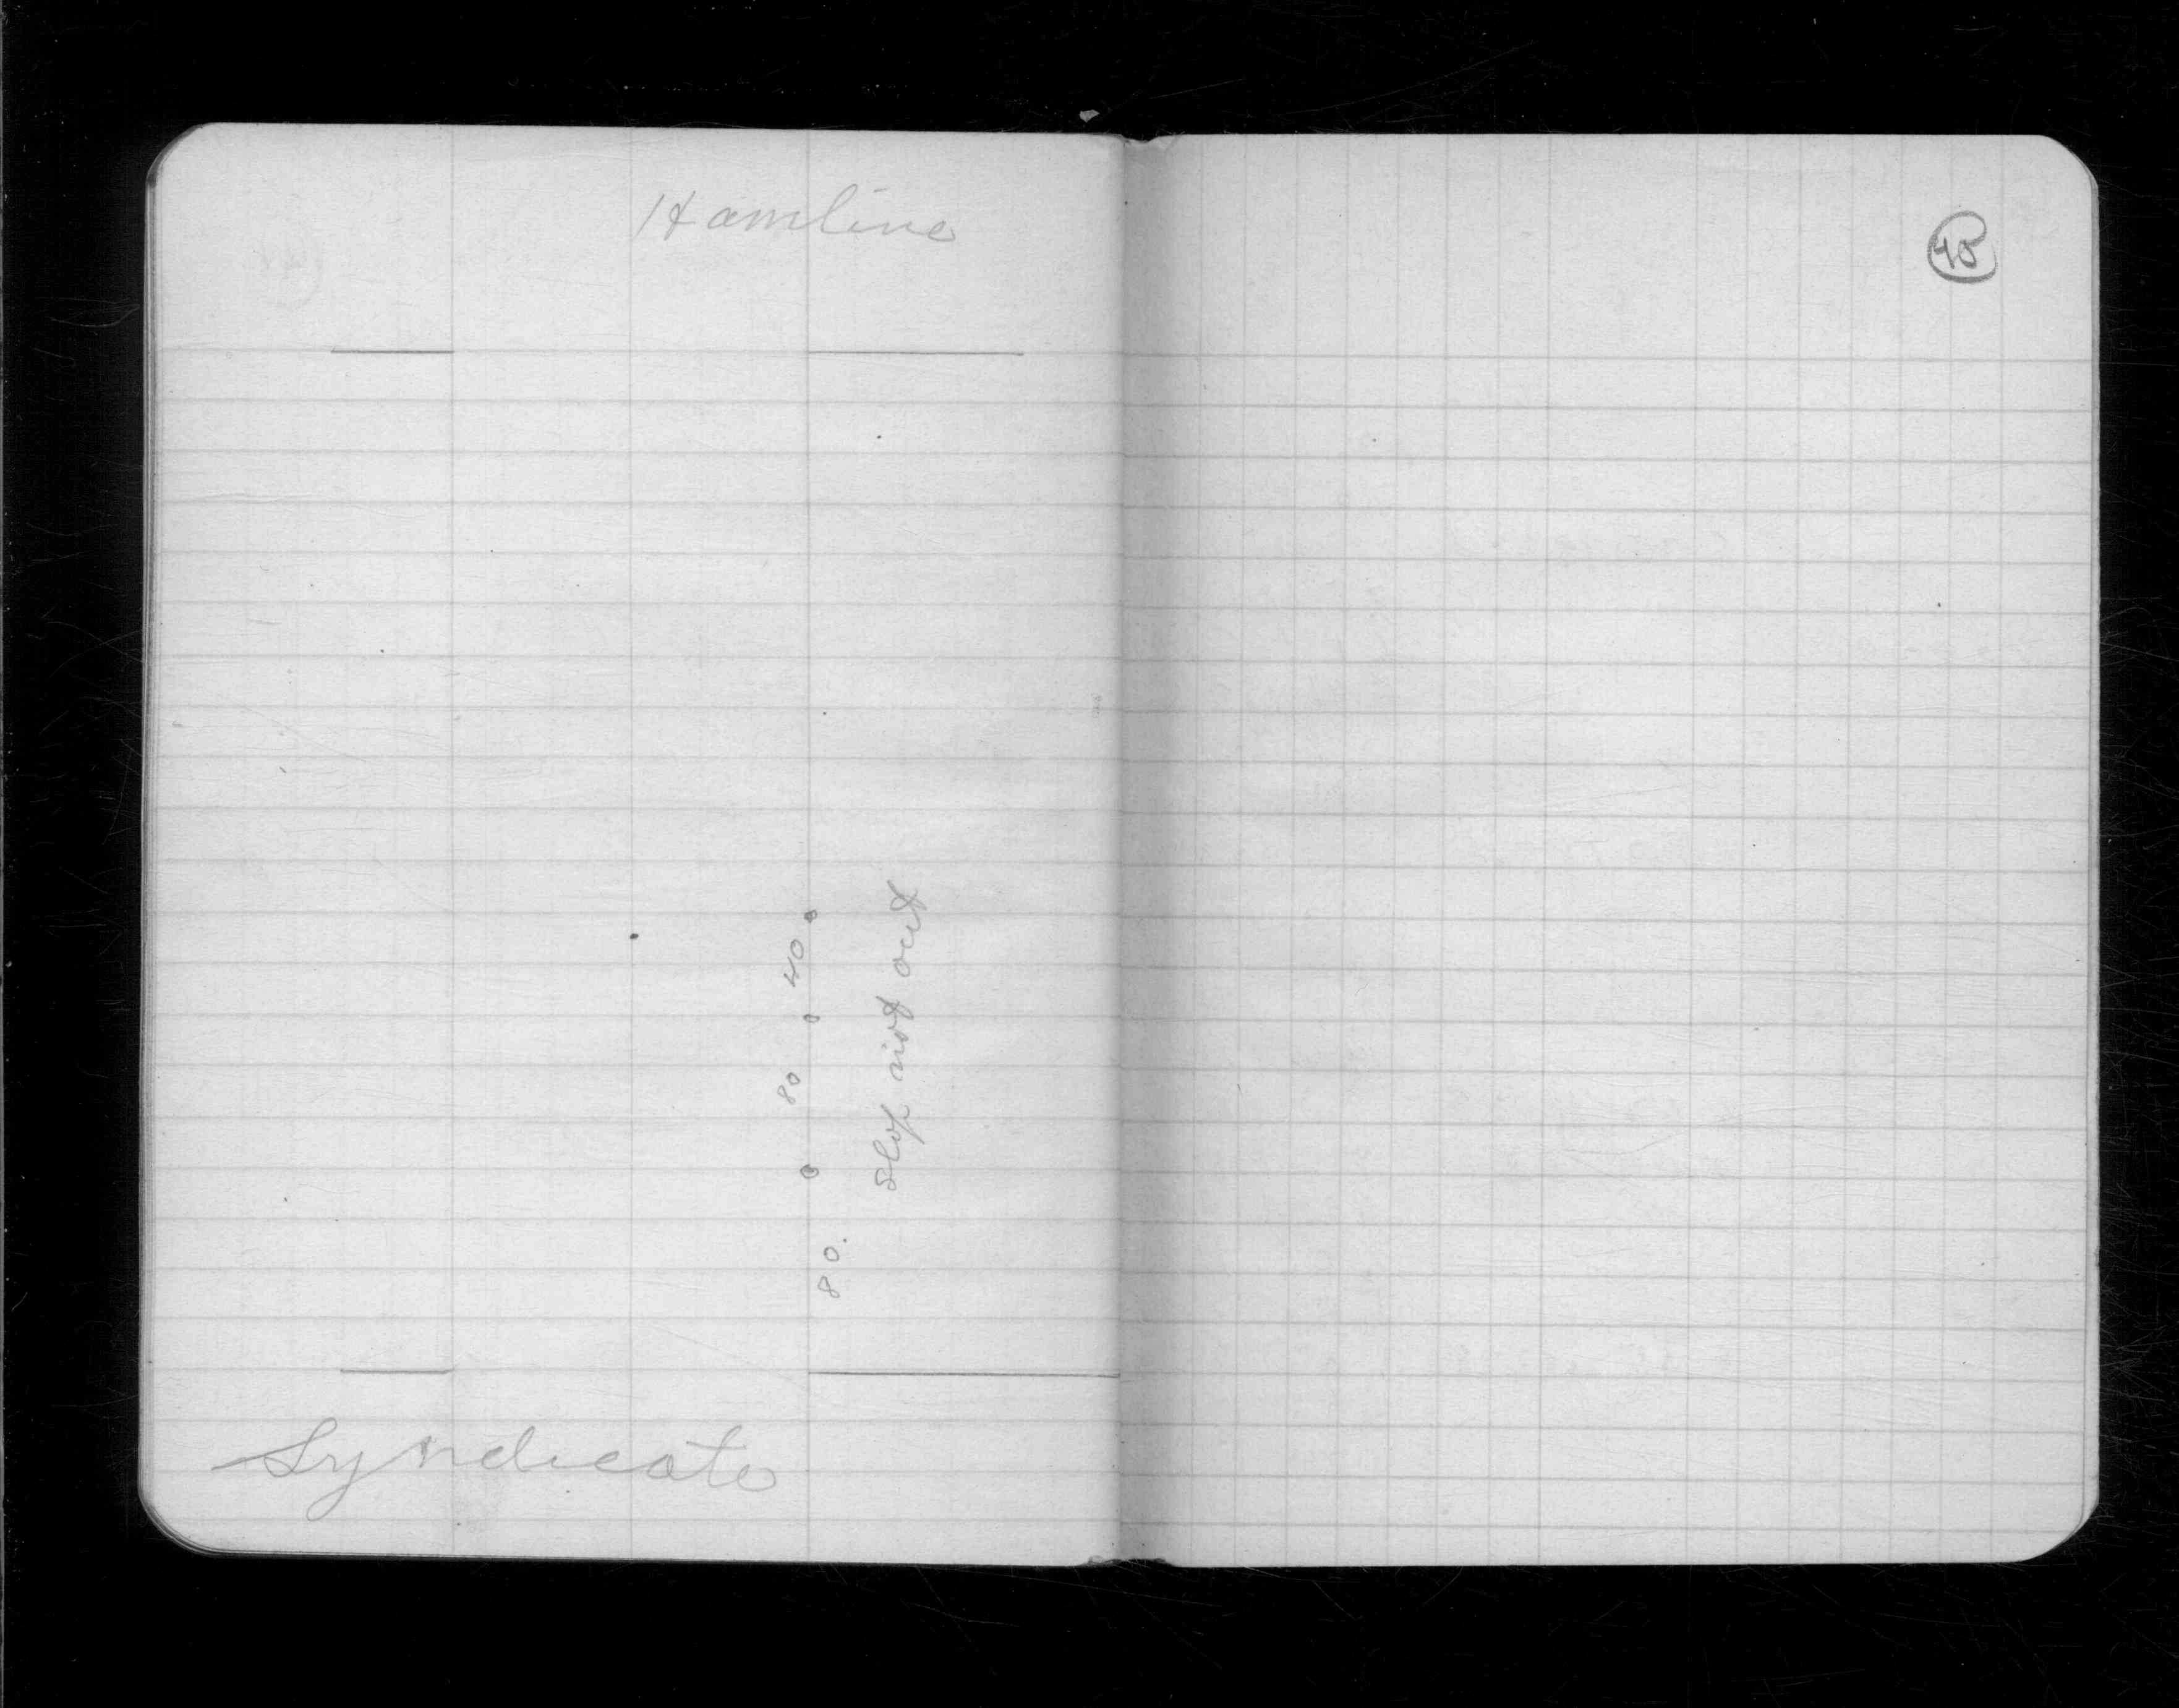 Hamline
45
40
80
slop not out
80.
Syndicate